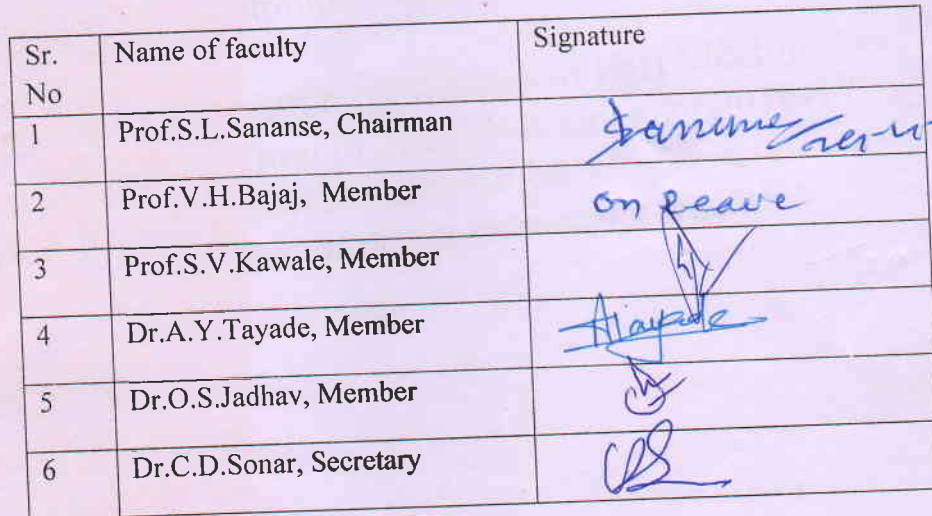 Sr. No Name of faculty Signature
1 Prof.S.L.Sananse, Chairman
2 Prof.V.H.Bajaj, Member on leave
3 Prof.S.V.Kawale, Member
4 Dr.A.Y.Tayade, Member
5 Dr.O.S.Jadhav, Member
6 Dr.C.D.Sonar, Secretary